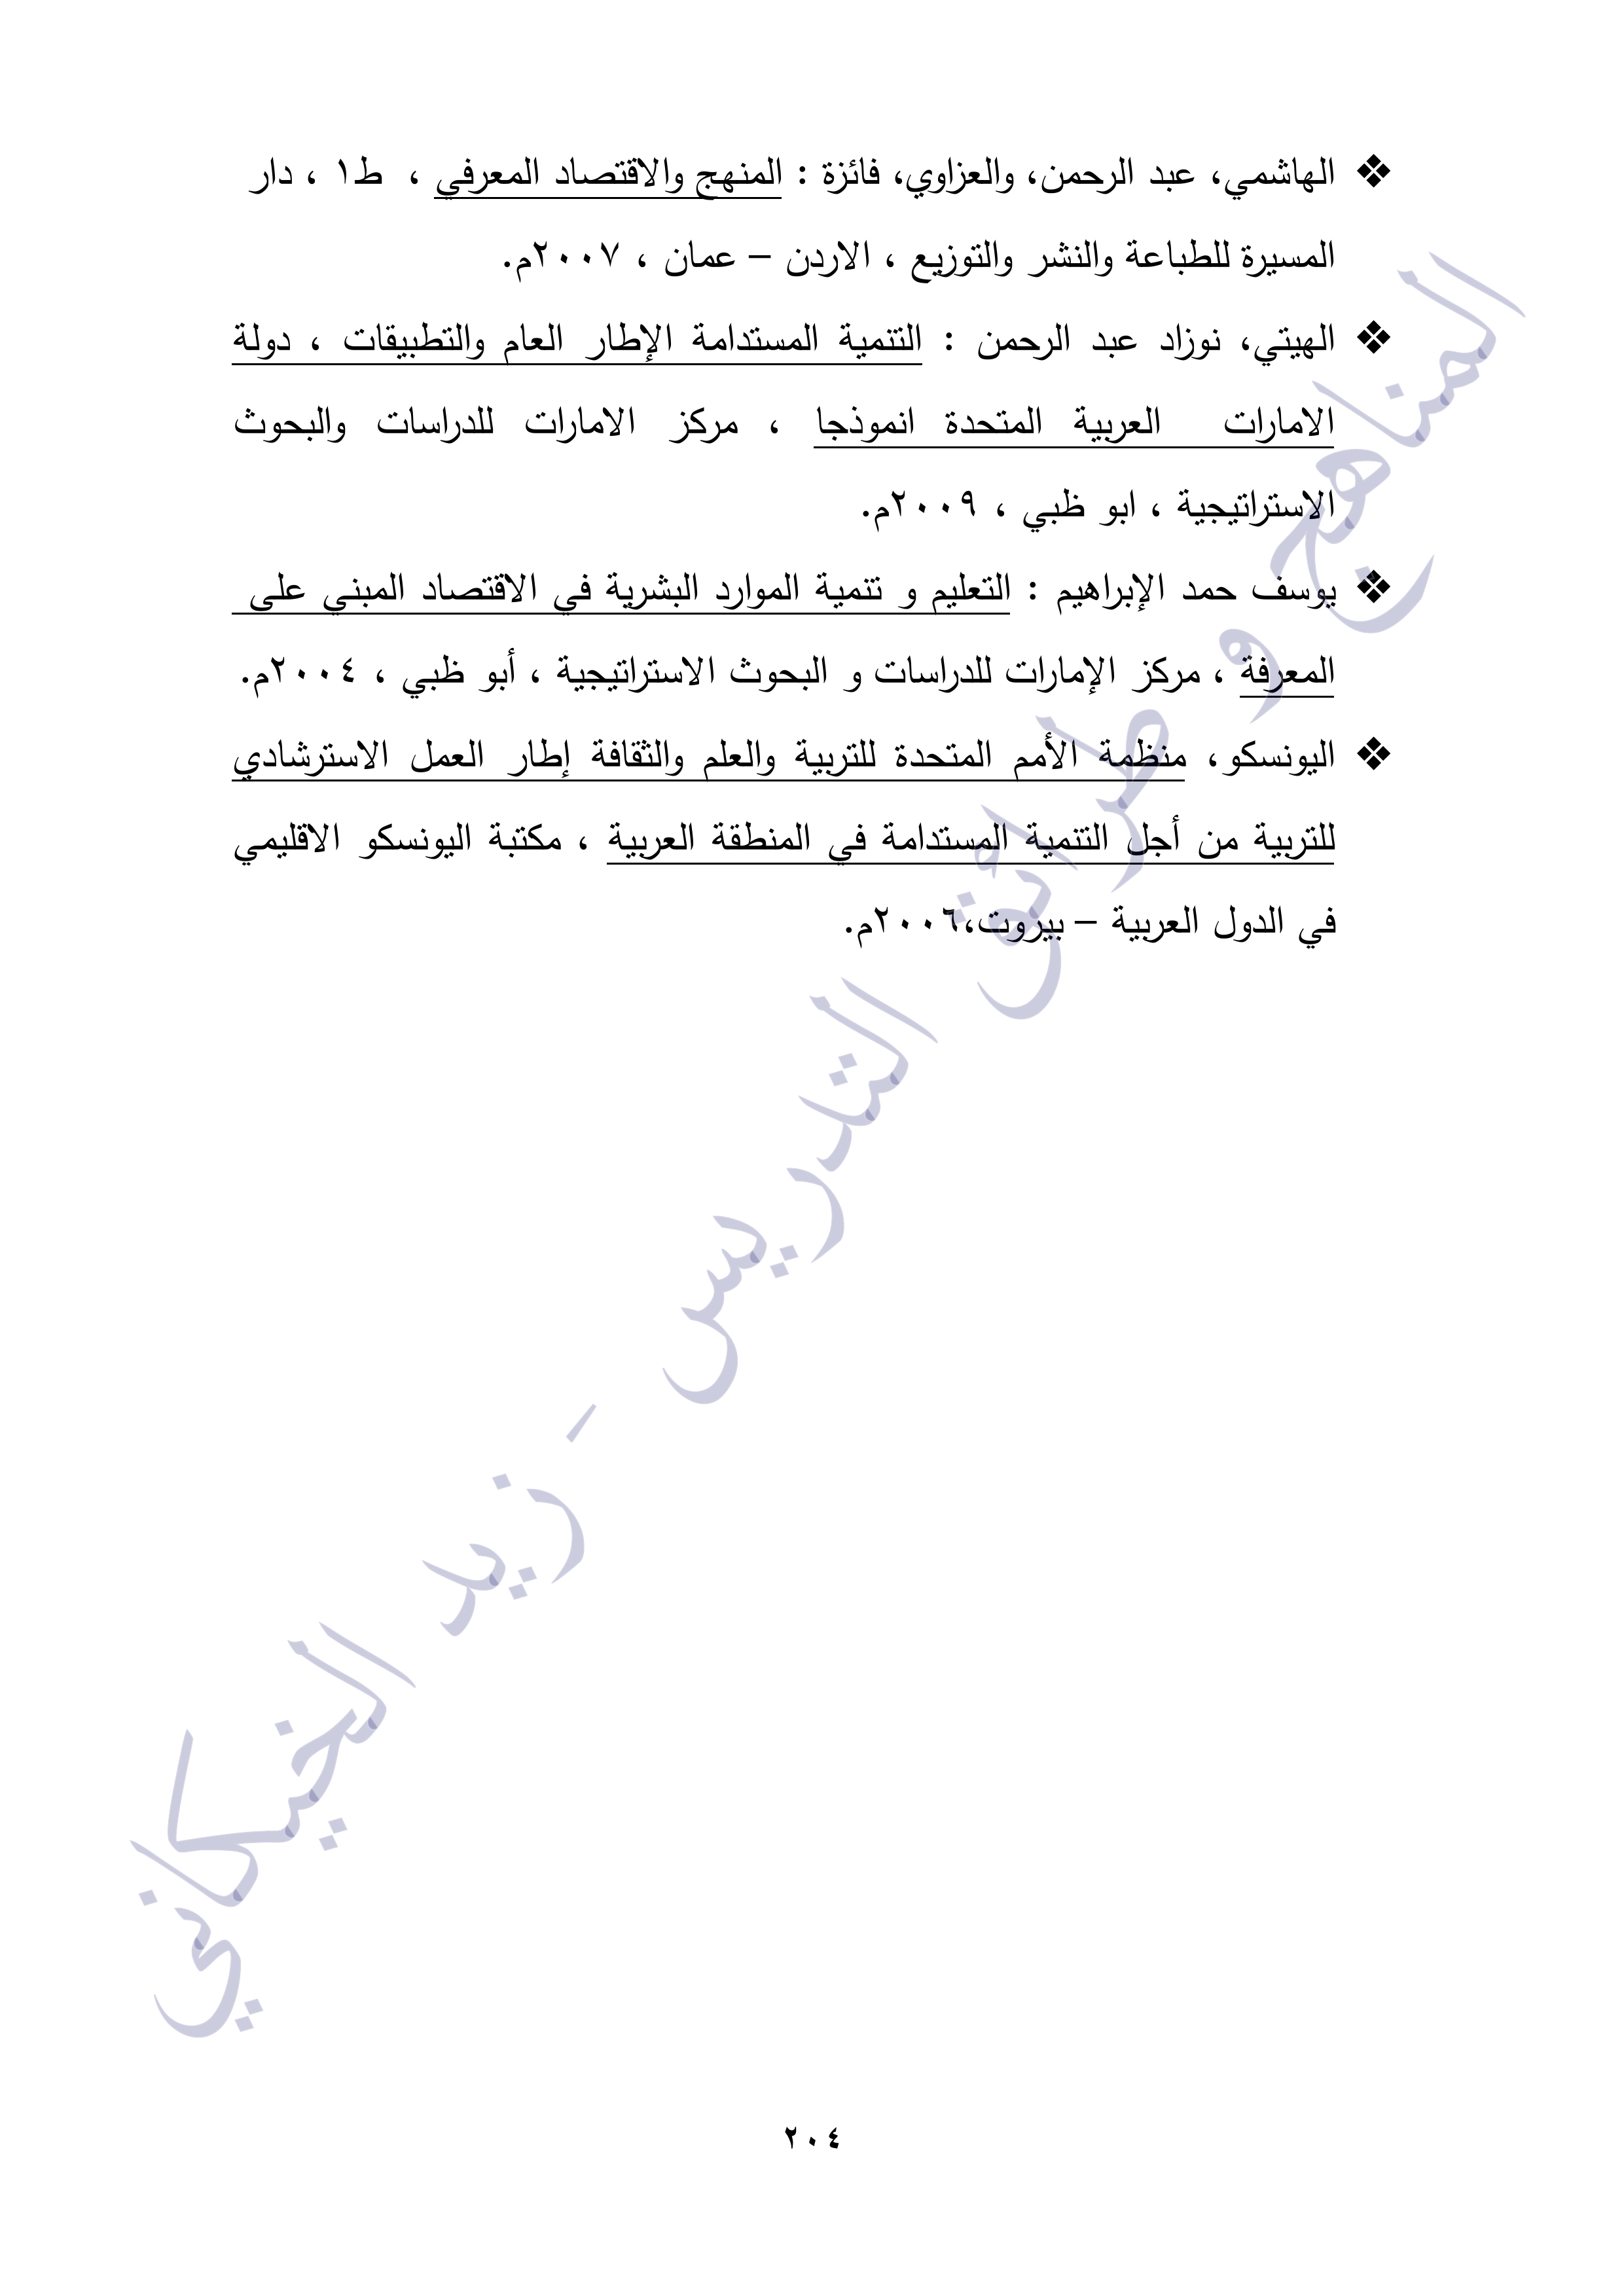 ❖ الهاشمي، عبد الرحمن، والعزاوي، فائزة : المنهج والاقتصاد المعرفي ، ط١ ، دار
المسيرة للطباعة والنشر والتوزيع ، الاردن – عمان ، ٢٠٠٧م.
❖ الهيتي، نوزاد عبد الرحمن : التنمية المستدامة الإطار العام والتطبيقات ، دولة
الامارات العربية المتحدة انموذجا ، مركز الامارات للدراسات والبحوث
الاستراتيجية ، ابو ظبي ، ٢٠٠٩م.
❖ يوسف حمد الإبراهيم : التعليم و تنمية الموارد البشرية في الاقتصاد المبني على
المعرفة ، مركز الإمارات للدراسات و البحوث الاستراتيجية ، أبو ظبي ، ٢٠٠٤م.
❖ اليونسكو، منظمة الأمم المتحدة للتربية والعلم والثقافة إطار العمل الاسترشادي
للتربية من أجل التنمية المستدامة في المنطقة العربية ، مكتبة اليونسكو الاقليمي
في الدول العربية – بيروت،٢٠٠٦م.
المناهج و طرائق التدريس - زيد الخيكاني
٢٠٤